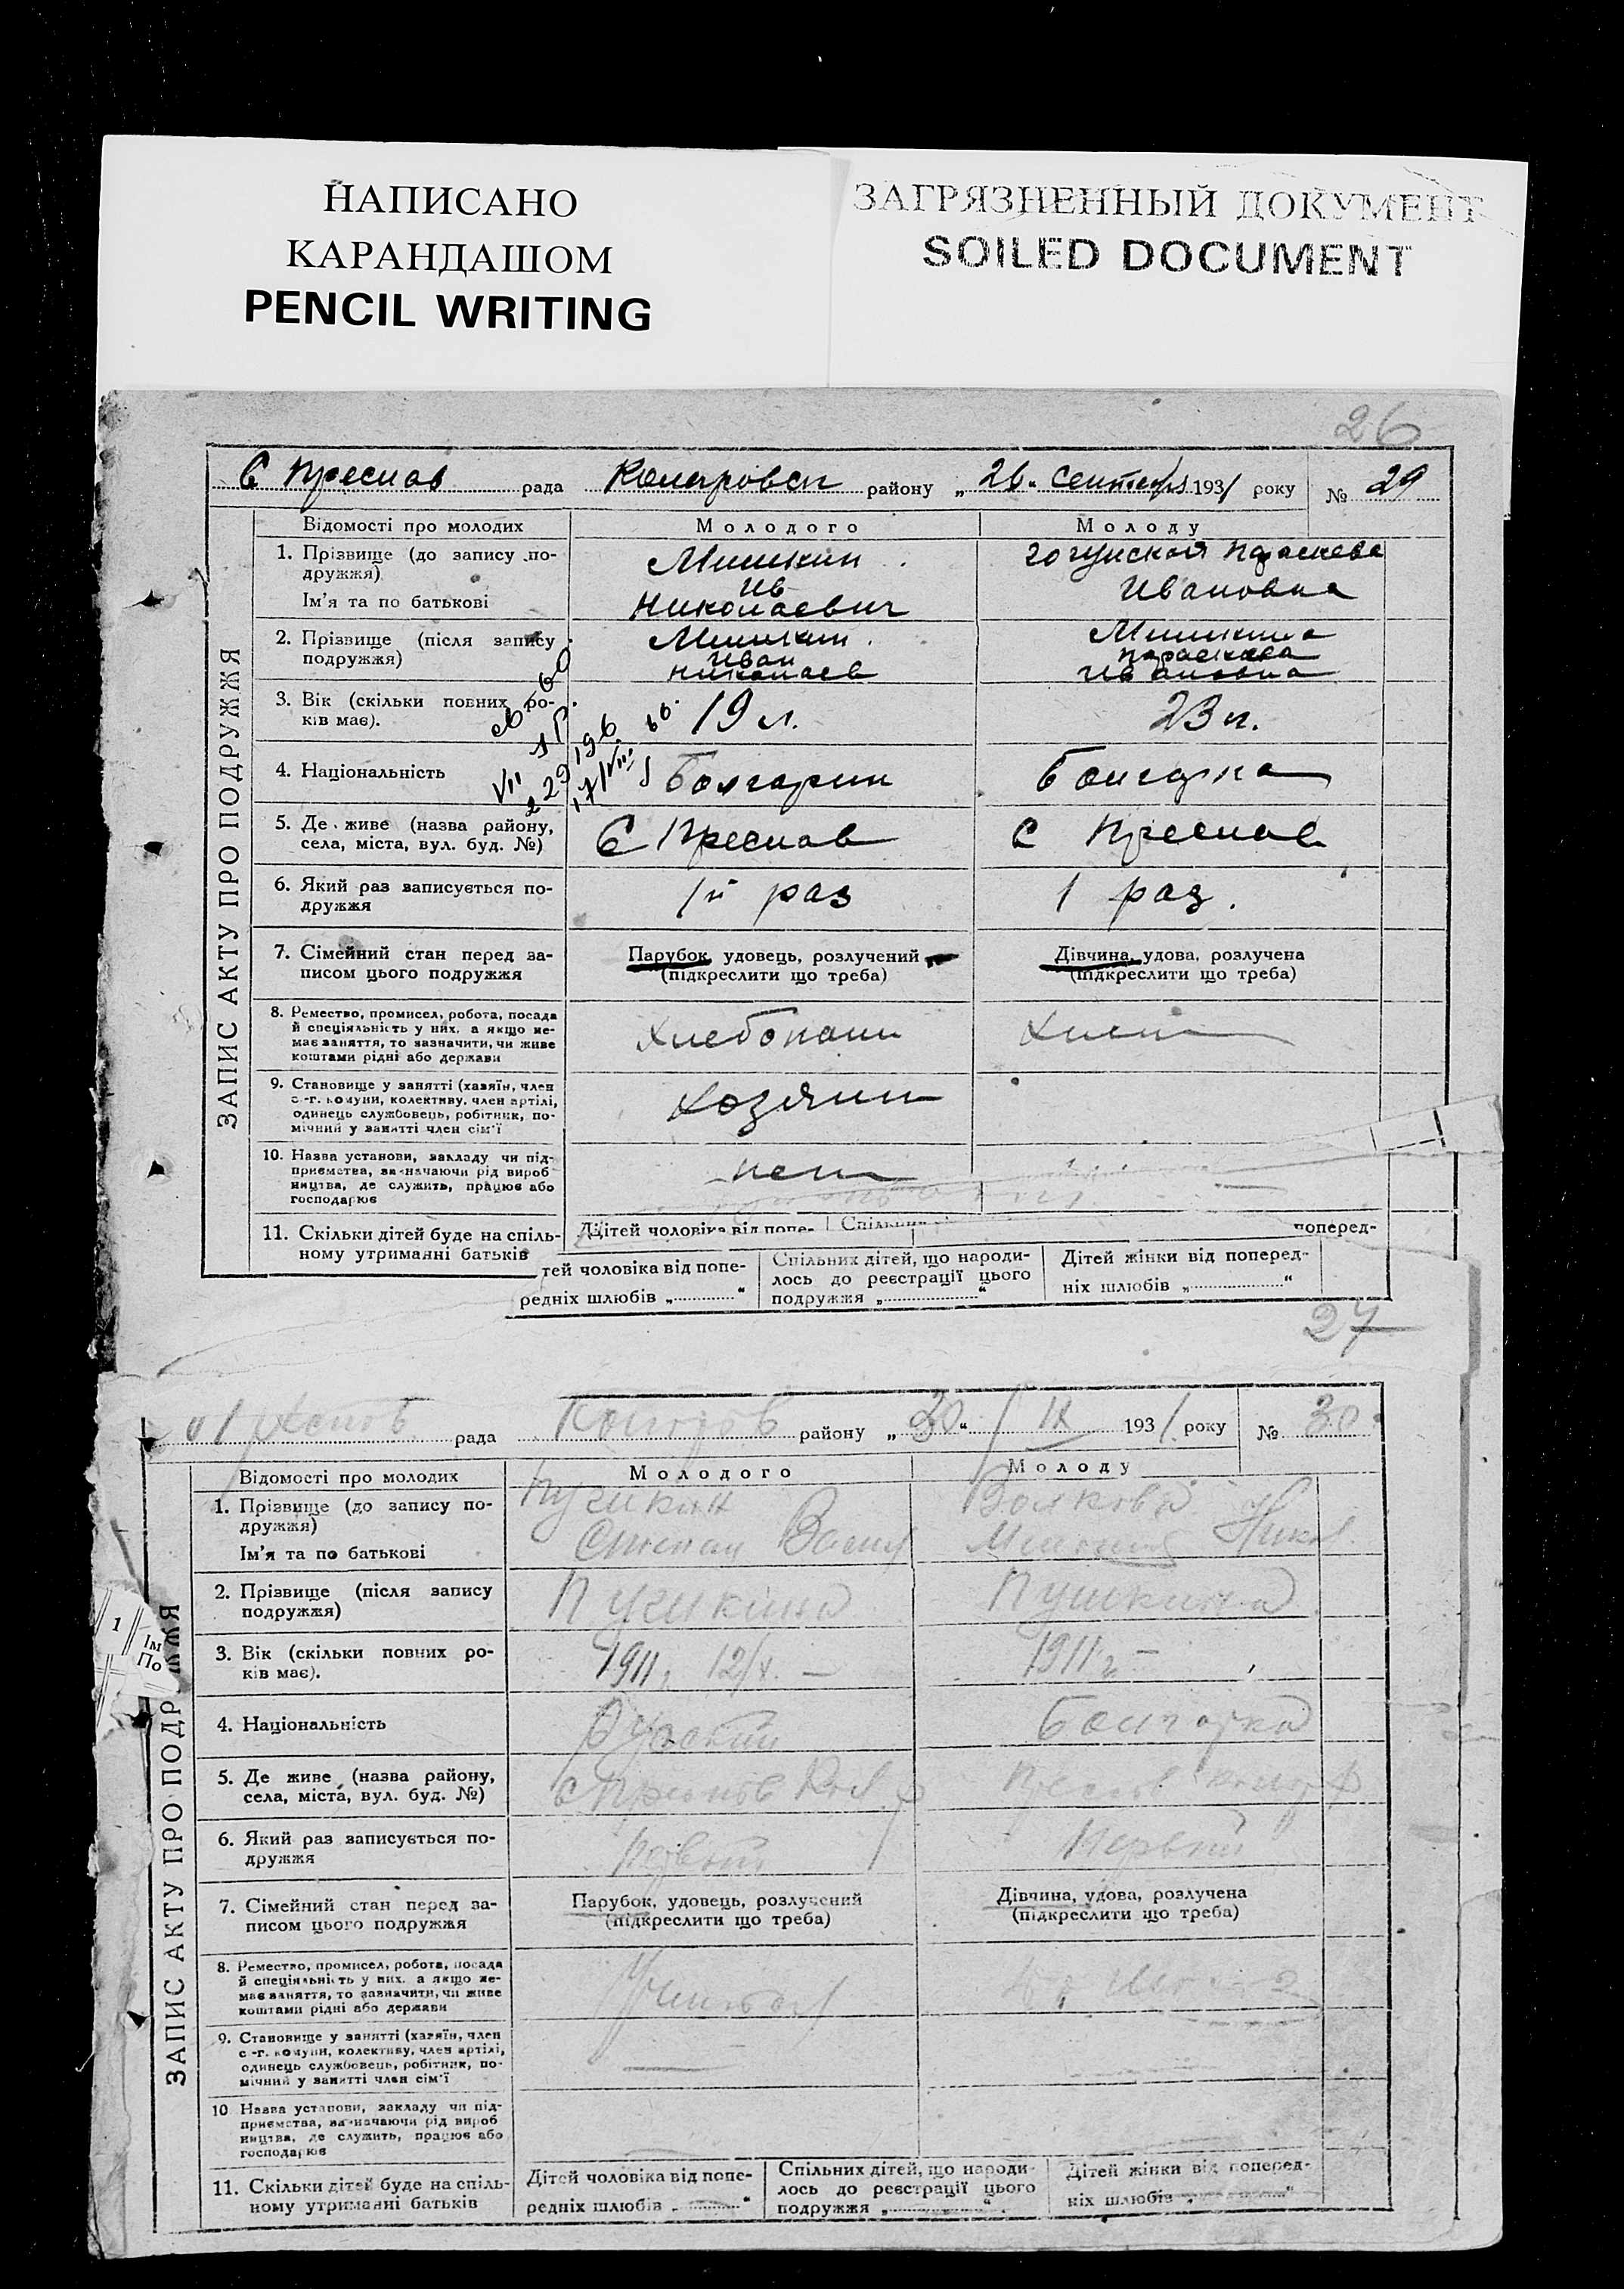 НАПИСАНО
КАРАНДАШОМ
PENCIL WRITING
ЗАГРЯЗНЕННЫЙ ДОКУМЕНТ
SOILED DOCUMENT
26
С Преслав рада Коларовск району „26" Сентябр 1931 року № 29
ЗАПИС АКТУ ПРО ПОДРУЖЖЯ
Відомості про молодих Молодого Молоду
1. Прізвище (до запису по-
дружжя)
Ім'я та по батькові
Мишкин
Ив
Николаевич
Параскева
Ивановна
2. Прізвище (після запису
подружжя)
Мишкин
Иван
Николаев
Мишкина
Параскева
Ивановна
3. Вік (скільки повних ро-
ків має).
19 л.
23 л.
4. Національність
Болгарин
Болгарка
5. Де живе (назва району,
села, міста, вул. буд. №)
С Преслав
С Преслав
6. Який раз записується по-
дружжя
1й раз
1 раз.
7. Сімейний стан перед за-
писом цього подружжя
Парубок, удовець, розлучений
(підкреслити що треба)
Дівчина, удова, розлучена
(підкреслити що треба)
8. Ремество, промисел, робота, посада
й спеціяльність у них, а якщо не-
має заняття, то зазначити, чи живе
коштами рідні або держави
Хлебопаш
9. Становище у занятті (хазяїн, член
с.-г. комуни, колективу, член артілі,
одинець службовець, робітник, по-
мічний у занятті член сім'ї
Хозяин
10. Назва установи, закладу чи під-
приємства, зазначаючи рід вироб
ництва, де служить, працює або
господарює
нет
11. Скільки дітей буде на спіль-
ному утриманні батьків
Дітей чоловіка від попе-
поперед-
тей чоловіка від попе-
редніх шлюбів „ "
Спільних дітей, що народи-
лось до реєстрації цього
подружжя „ "
Дітей жінки від поперед-
ніх шлюбів „ "
27
рада Коларов району „30" IX 1931 року № 30
ЗАПИС АКТУ ПРО ПОДР ЖЖЯ
1
Ім
По
Відомості про молодих Молодого Молоду
1. Прізвище (до запису по-
дружжя)
Ім'я та по батькові
Пушкин
Степан Васил
Волкова
Никол
2. Прізвище (після запису
подружжя)
Пушкина
Пушкина
3. Вік (скільки повних ро-
ків має).
1911, 12/X. —
1911 г —
4. Національність
Русский
Болгарка
5. Де живе (назва району,
села, міста, вул. буд. №)
с Преслов Кол. р
Преслов Колар р
6. Який раз записується по-
дружжя
Первый
Первый
7. Сімейний стан перед за-
писом цього подружжя
Парубок, удовець, розлучений
(підкреслити що треба)
Дівчина, удова, розлучена
(підкреслити що треба)
8. Ремество, промисел, робота, посада
й спеціяльність у них, а якщо не-
має заняття, то зазначити, чи живе
коштами рідні або держави
Учитель
9. Становище у занятті (хазяїн, член
с.-г. комуни, колективу, член артілі,
одинець службовець, робітник, по-
мічний у занятті член сім'ї
10 Назва установи, закладу чи під-
приємства, зазначаючи рід вироб
ництва, де служить, працює або
господарює
11. Скільки дітей буде на спіль-
ному утриманні батьків
Дітей чоловіка від попе-
редніх шлюбів „ "
Спільних дітей, що народи-
лось до реєстрації цього
подружжя „ "
Дітей жінки від поперед-
ніх шлюбів „ "